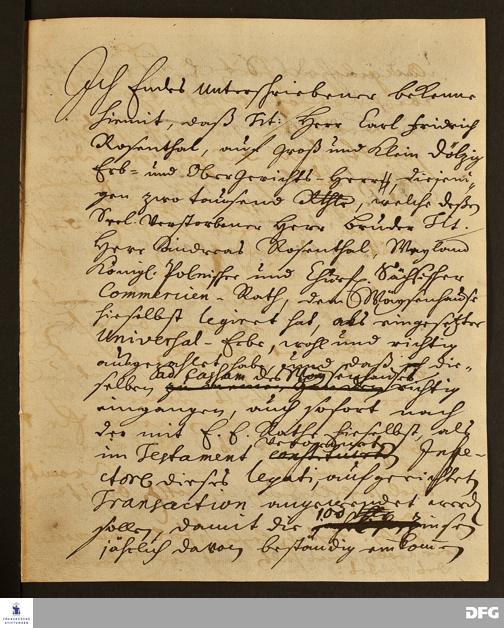 Ich Endes Unterschriebener bekenne
hiemit, daß Tit: Herr Carl Fridrich
Rosenthal, auf Groß und Klein Dölzig
Erb- und Ober Gerichts-Herr, diejeni-
gen zwo tausend Rthlr, welche deßen
Seel. Verstorbener Herr Bruder Tit.
Herr Andreas Rosenthal Weyland
Königl. Polnischer und Churf. Sächsischer
Commercien-Rath, dem Waysenhause
hieselbst legiret hat, als eingesetzter
Universal-Erbe, wohl und richtig
ausgezahlet habe, und daß ich die-
selben ad Cassam des Waysenhauses richtig
eingangen, auch sofort nach
der mit E. E. Rathe hieselbst, als
im Testament verordneten constituirten Inspe-
ctore dieses legati, aufgerichteten
Transaction angewendet werden
sollen, damit die 100 Rthlr Zinsen
jährlich davon beständig einkommen
FRANCKESCHE
STIFTUNGEN
DFG